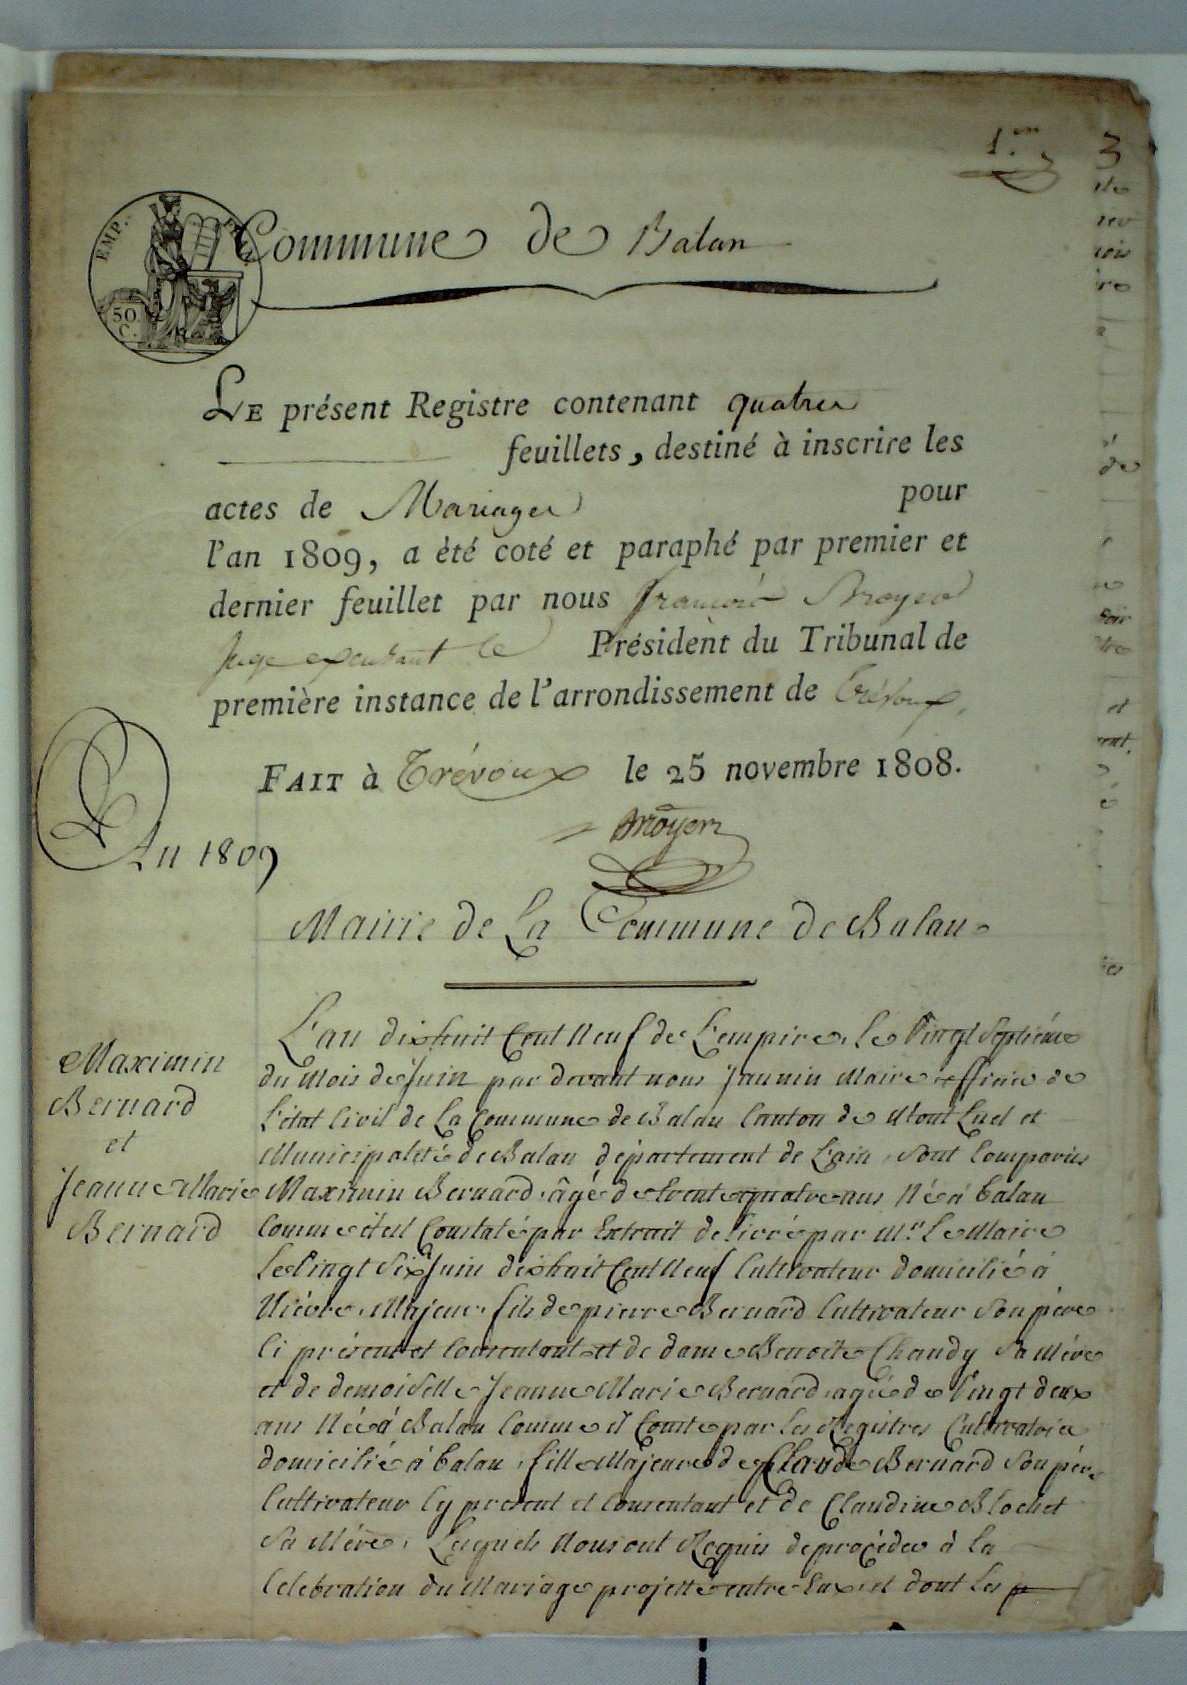 1.er 3
EMP. FRAN.
50
C.
Commune de Balan
LE présent Registre contenant quatre
feuillets, destiné à inscrire les
actes de Mariages pour
l'an 1809, a été coté et paraphé par premier et
dernier feuillet par nous françois Broyer
Juge exerçant le Président du Tribunal de
première instance de l'arrondissement de Trévoux,
FAIT à Trévoux le 25 novembre 1808.
Broyer
An 1809
Mairie de La Commune de Balan
L'an dixhuit Cent Neuf de L'empire, Le Vingt Septiéme
du Mois de Juin par devant nous Jannin Maire officie de
L'état Civil de La Commune de Balan Canton de Mont Luel et
Municipalité de Balan département de L'ain, Sont Comparus
Maximin
Bernard
et
Jeanne Marie
Bernard
Maximin Bernard, âgé de trente quatre ans Né á balan
Comme il est Constaté par Extrait delivré par Mr. Le Maire
Le Vingt Six Juin dixhuit Cent Neuf Cultivateur domicilié á
Niévre, Majeur, fils de pierre Bernard Cultivateur Son pére
Ci présent et Consentant et de dame Benoite Chaudy Sa Mére
et de demoiselle Jeanne Marie Bernard, agée de Vingt deux
ans Née á Balan Comme il Conste par Les Registres Cultivatrice
domicilié á balan, fille Majeure de Claude Bernard Son pére
Cultivateur Cy present et Consentant et de Claudine Blochet
Sa Mére, Lesquels Nous ont Requis de procéder à La
Celebration du Mariage projetté entre Eux et dont Les p